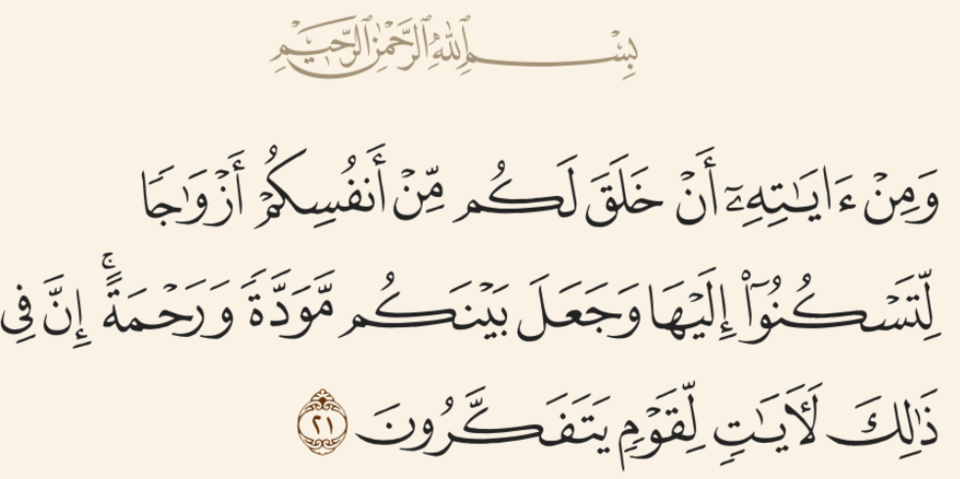 بِسْمِ ٱللَّهِ ٱلرَّحْمَٰنِ ٱلرَّحِيمِ
وَمِنْ ءَايَٰتِهِۦٓ أَنْ خَلَقَ لَكُم مِّنْ أَنفُسِكُمْ أَزْوَٰجًا
لِّتَسْكُنُوٓا۟ إِلَيْهَا وَجَعَلَ بَيْنَكُم مَّوَدَّةً وَرَحْمَةً ۚ إِنَّ فِى
ذَٰلِكَ لَءَايَٰتٍ لِّقَوْمٍ يَتَفَكَّرُونَ ٢١